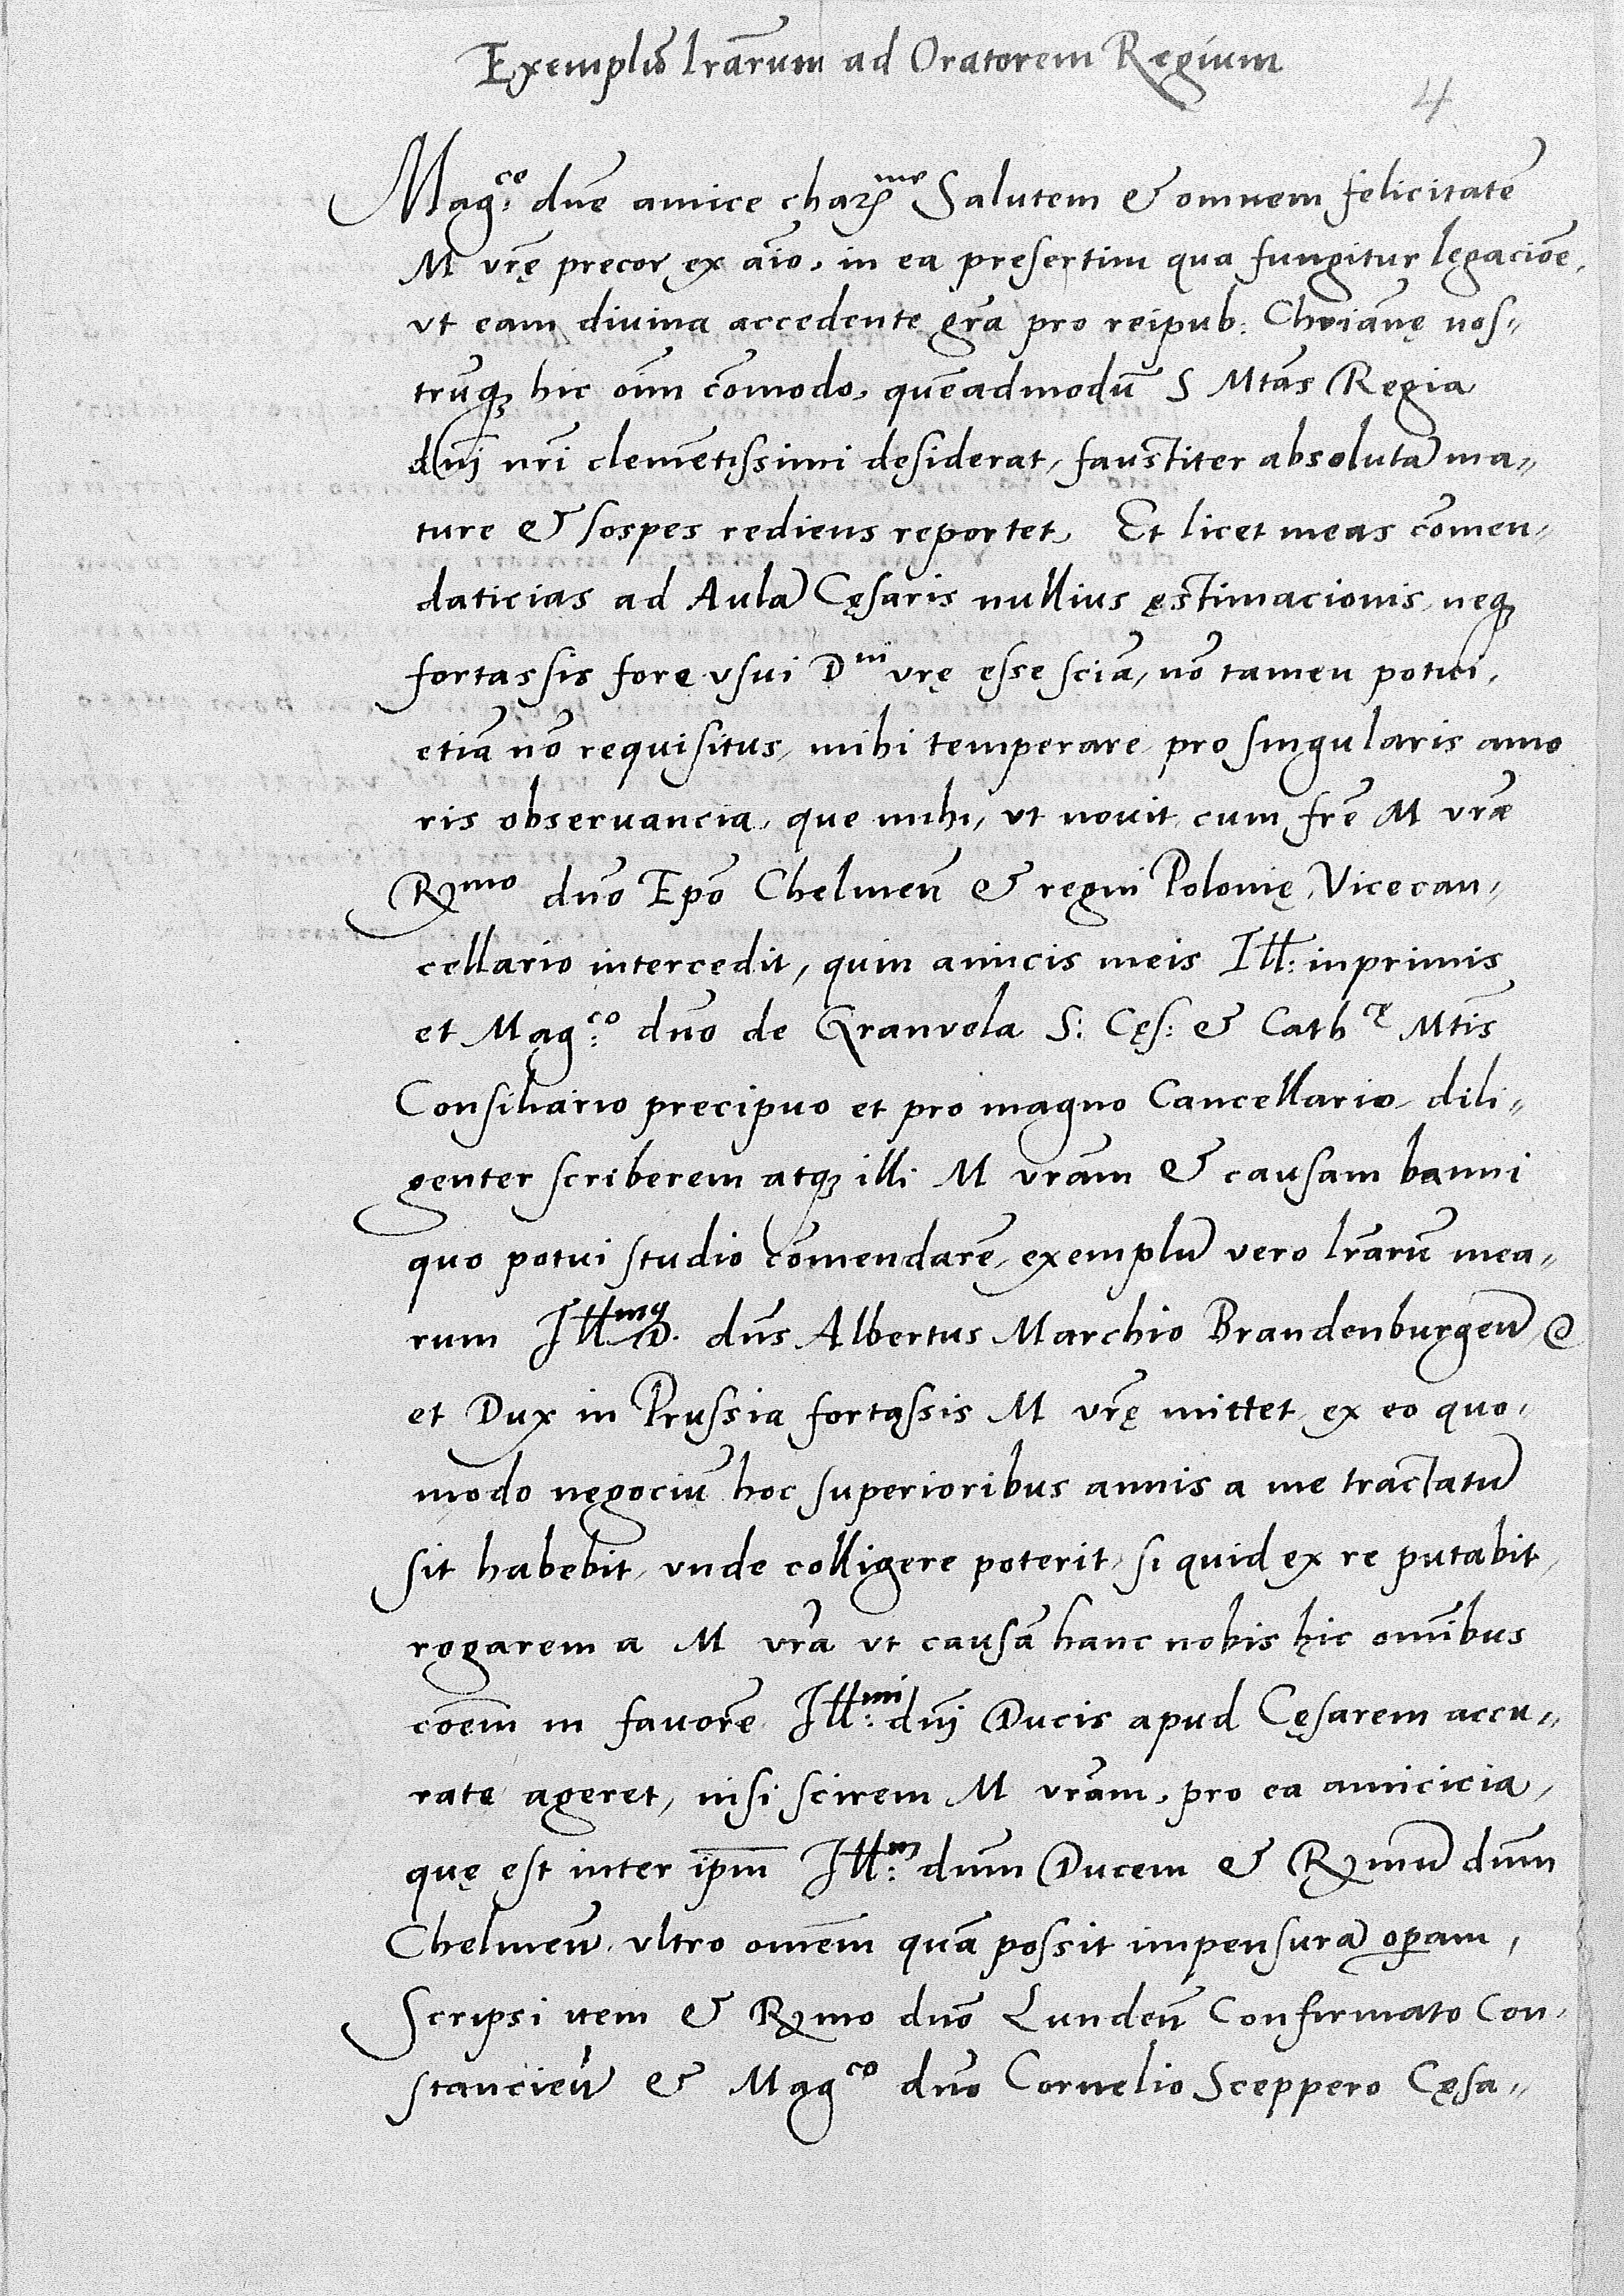 Exemplũ lrãrum ad Oratorem Regium
4
Mag:ce dne amice chariss me Salutem & omnem felicitatẽ
M vrę precor ex aĩo, in ea presertim qua fungitur legaciõe,
vt eam diuina accedente grã pro reipub: Chrianę nos„
trũq₃ hic oĩm cõmodo, quẽadmodũ S Mtãs Regia
dnĩ nrĩ clemẽtissimi desiderat, faustiter absolutã ma„
ture & sospes rediens reportet, Et licet meas cõmen„
daticias ad Aulã Cęsaris nullius ęstimacionis, neq₃
fortassis fore vsui D ni vrę esse sciã, nõ tamen potui,
etiã nõ requisitus, mihi temperare, pro singularis amo
ris obseruancia, que mihi, vt nouit, cum frẽ M vræ
Rmo dnõ Epõ Chelmeñ & regni Polonię, Vicecan„
cellario intercedit, quin amicis meis Ill: inprimis
et Mag:co dnõ de Granvela S: Cęs: & Cath cę Mtis
Consiliario precipuo et pro magno Cancellario, dili„
genter scriberem atq₃ illi M vrãm & causam banni
quo potui studio cõmendarẽ, exemplũ vero lrãrũ mea„
rum Ill mq D. dns Albertus Marchio Brandenburgeñ, &
et Dux in Prussia fortassis M vrę mittet, ex eo quo„
modo negociũ hoc superioribus annis a me tractatũ
sit habebit, vnde colligere poterit, si quid ex re putabit,
rogarem a M vrã vt causã hanc nobis hic omĩbus
cõem in fauorẽ Ill:mi dnĩ Ducis apud Cęsarem accu„
rate ageret, nisi scirem M vrãm, pro ea amicicia,
quę est inter ipm̃ Ill:m dnm Ducem & Rmũ dnm
Chelmeñ, vltro omẽm quã possit impensurã operam,
Scripsi item & Rmo dnõ Lundeñ Confirmato Con„
stancieñ & Mag co dnõ Cornelio Sceppero Cęsa„